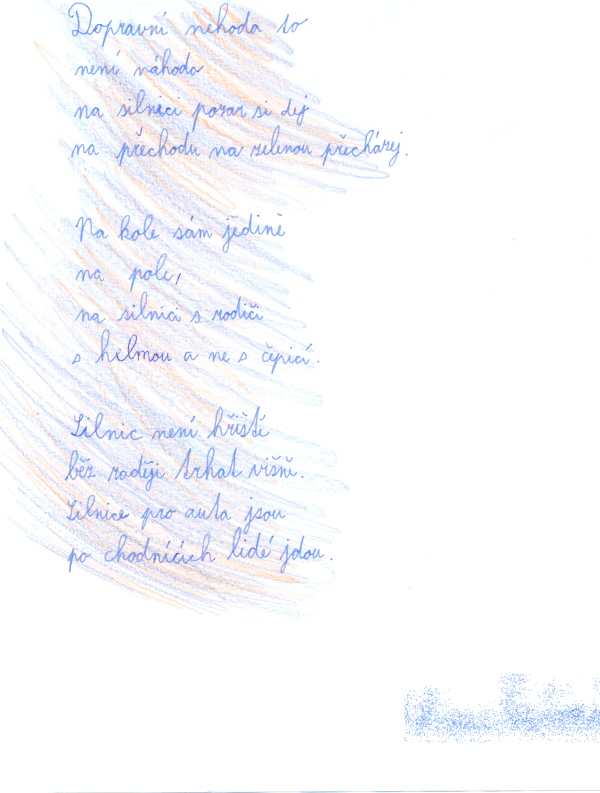 Dopravní nehoda to
není náhoda
na silnici pozar si dej
na přechodu na zelenou přecházej.
Na kole sám jedině
na pole,
na silnici s rodiči
s helmou a ne s čepicí.
Silnic není hřiště
běž raději trhat višně.
Silnice pro auta jsou
po chodnících lidé jdou.